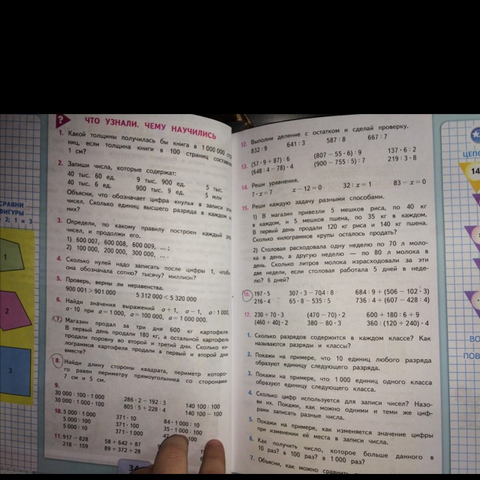 ЧТО УЗНАЛИ. ЧЕМУ НАУЧИЛИСЬ
1. Какой толщины получилась бы книга в 1 000 000
ниц, если толщина книги в 100 страниц
1 см?
2. Запиши числа, которые содержат:
40 тыс. 60 ед. 9 тыс. 900 ед. 5 тыс.
40 тыс. 6 ед. 900 тыс. 9 ед. 5 млн
Объясни, что обозначает цифра «нуль» в записи
чисел. Сколько единиц высшего разряда в каждом
них?
3. Определи, по какому правилу построен каждый
чисел, и продолжи его.
1) 600 007, 600 008, 600 009, ... ;
2) 100 000, 200 000, 300 000, ... .
4. Сколько нулей надо записать после цифры 1, чтобы
она обозначала сотню? тысячу? миллион?
5. Проверь, верны ли неравенства.
900 001 > 901 000 5 312 000 < 5 320 000
6. Найди значения выражений a + 1, a − 1, a : 1 000,
a · 10 при a = 1 000, a = 100 000, a = 1 000 000.
7. Магазин продал за три дня 600 кг картофеля.
В первый день продали 180 кг, а остальной картофель
продали поровну во второй и третий дни. Сколько
лограммов картофеля продали в первый и второй дни
вместе?
8. Найди длину стороны квадрата, периметр которо-
го равен периметру прямоугольника со сторонами
7 см и 5 см.
9.
30 000 · 100 : 1 000 286 · 2 − 192 : 3 140 100 · 100
30 000 · 100 : 1 000 605 : 5 + 228 : 4 140 100 : 100
10. 5 000 · 1 000 371 · 10 84 · 1 000 : 10
5 000 : 1 000 371 · 100 35 · 1 000 : 100
5 000 · 100
5 000 : 100
11. 917 − 828 58 + 642 + 87
218 − 159 89 + 372 + 28
34
12. Выполни деление с остатком и сделай проверку.
832 : 9 641 : 3 587 : 8 667 : 7
13. (57 · 9 + 87) : 6 (807 − 55 · 6) : 9 137 · 6 : 2
(648 : 4 − 78) · 4 (900 − 755 : 5) : 7 219 : 3 · 8
14. Реши уравнения.
7 · x = 7 x − 12 = 0 32 : x = 1 83 − x = 0
15. Реши каждую задачу разными способами.
1) В магазин привезли 5 мешков риса, по 40 кг
в каждом, и 5 мешков пшена, по 35 кг в каждом.
В первый день продали 120 кг риса и 140 кг пшена.
Сколько килограммов крупы осталось продать?
2) Столовая расходовала одну неделю по 70 л моло-
ка в день, а другую неделю — по 80 л молока в
день. Сколько литров молока израсходовали за эти
две недели, если столовая работала 5 дней в неде-
лю? 6 дней?
16. 197 · 5 307 · 3 − 704 : 8 684 : 9 + (506 − 102 · 3)
216 · 4 65 · 8 − 535 : 5 736 : 4 + (607 − 428 : 4)
17. 230 + 70 · 3 (470 − 70) · 2 600 + 180 : 6 + 9
(460 + 40) · 2 380 − 80 · 3 360 : (120 + 240) · 4
1. Сколько разрядов содержится в каждом классе? Как
называются разряды и классы?
2. Покажи на примере, что 10 единиц любого разряда
образуют единицу следующего разряда.
3. Покажи на примере, что 1 000 единиц одного класса
образуют единицу следующего класса.
4. Сколько цифр используется для записи чисел? Назо-
ви их. Покажи, как можно одними и теми же циф-
рами записать разные числа.
5. Покажи на примере, как изменяется значение цифры
при изменении её места в записи числа.
6. Как получить число, которое больше данного в
10 раз? в 100 раз? в 1 000 раз?
7. Объясни, как можно сравнить